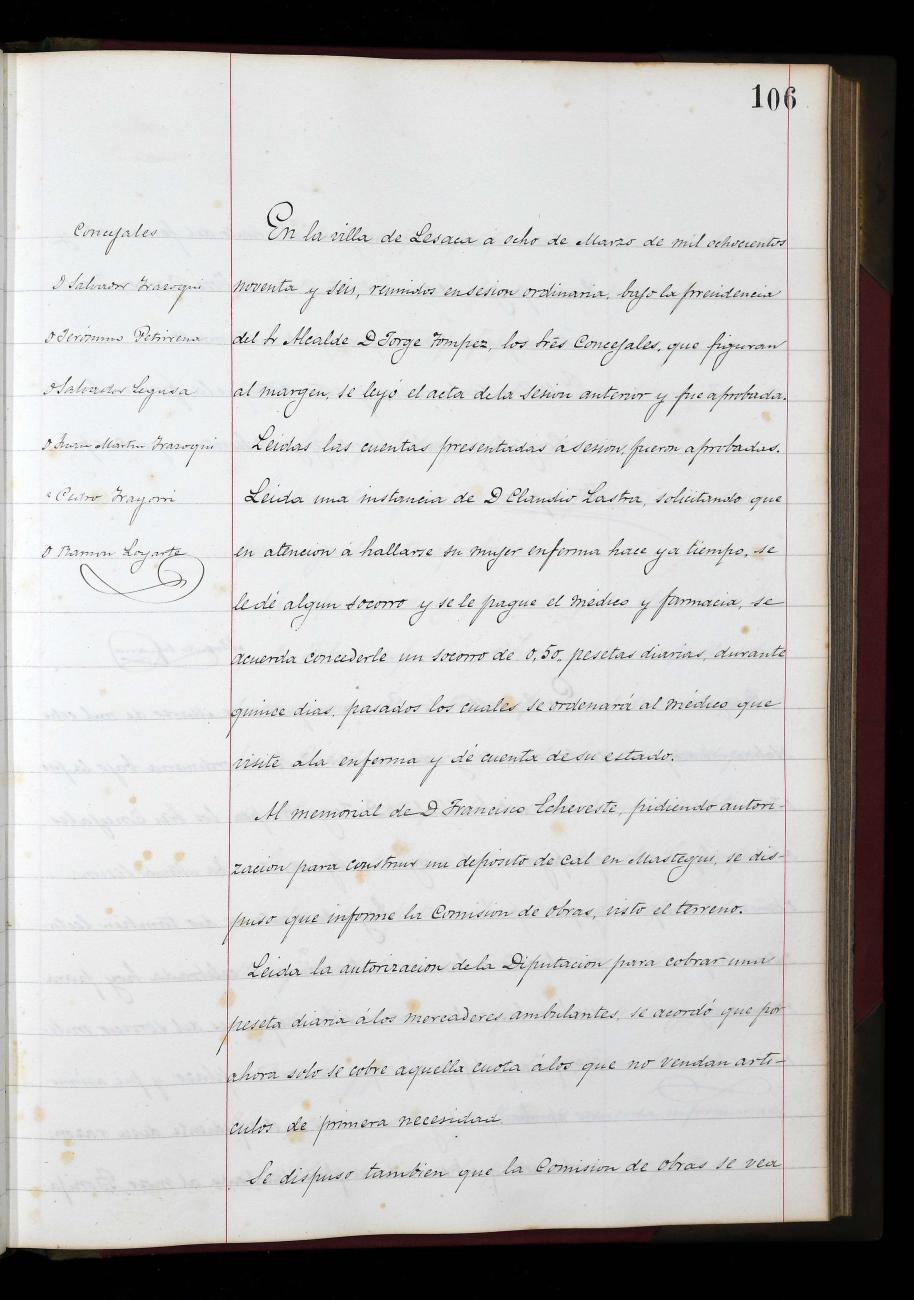 106
Concejales
D Salvador Irazoqui
D Jerónimo Petrirena
D Salvador Leguia
D Juan Martin Irazoqui
" Pedro Irayorri
D Ramon Loyarte
En la villa de Lesaca á ocho de Marzo de mil ochocientos
noventa y seis, reunidos en sesion ordinaria, bajo la presidencia
del Sr Alcalde D Jorge Tompez, los Sres Concejales, que figuran
al margen, se leyó el acta de la sesion anterior y fue aprobada.
Leidas las cuentas presentadas á sesion, fueron aprobadas.
Leida una instancia de D Claudio Lastra, solicitando que
en atencion á hallarse su mujer enferma hace ya tiempo, se
le dé algun socorro y se le pague el médico y farmacia, se
acuerda concederle un socorro de 0,50, pesetas diarias, durante
quince dias, pasados los cuales se ordenará al médico que
visite a la enferma y dé cuenta de su estado.
Al memorial de D Francisco Echeveste, pidiendo autori-
zacion para construir un depósito de cal en Mastegui, se dis-
puso que informe la Comision de obras, visto el terreno.
Leida la autorizacion de la Diputacion para cobrar una
peseta diaria á los mercaderes ambulantes, se acordó que por
ahora solo se cobre aquella cuota á los que no vendan arti-
culos de primera necesidad
Se dispuso tambien que la Comision de obras se vea